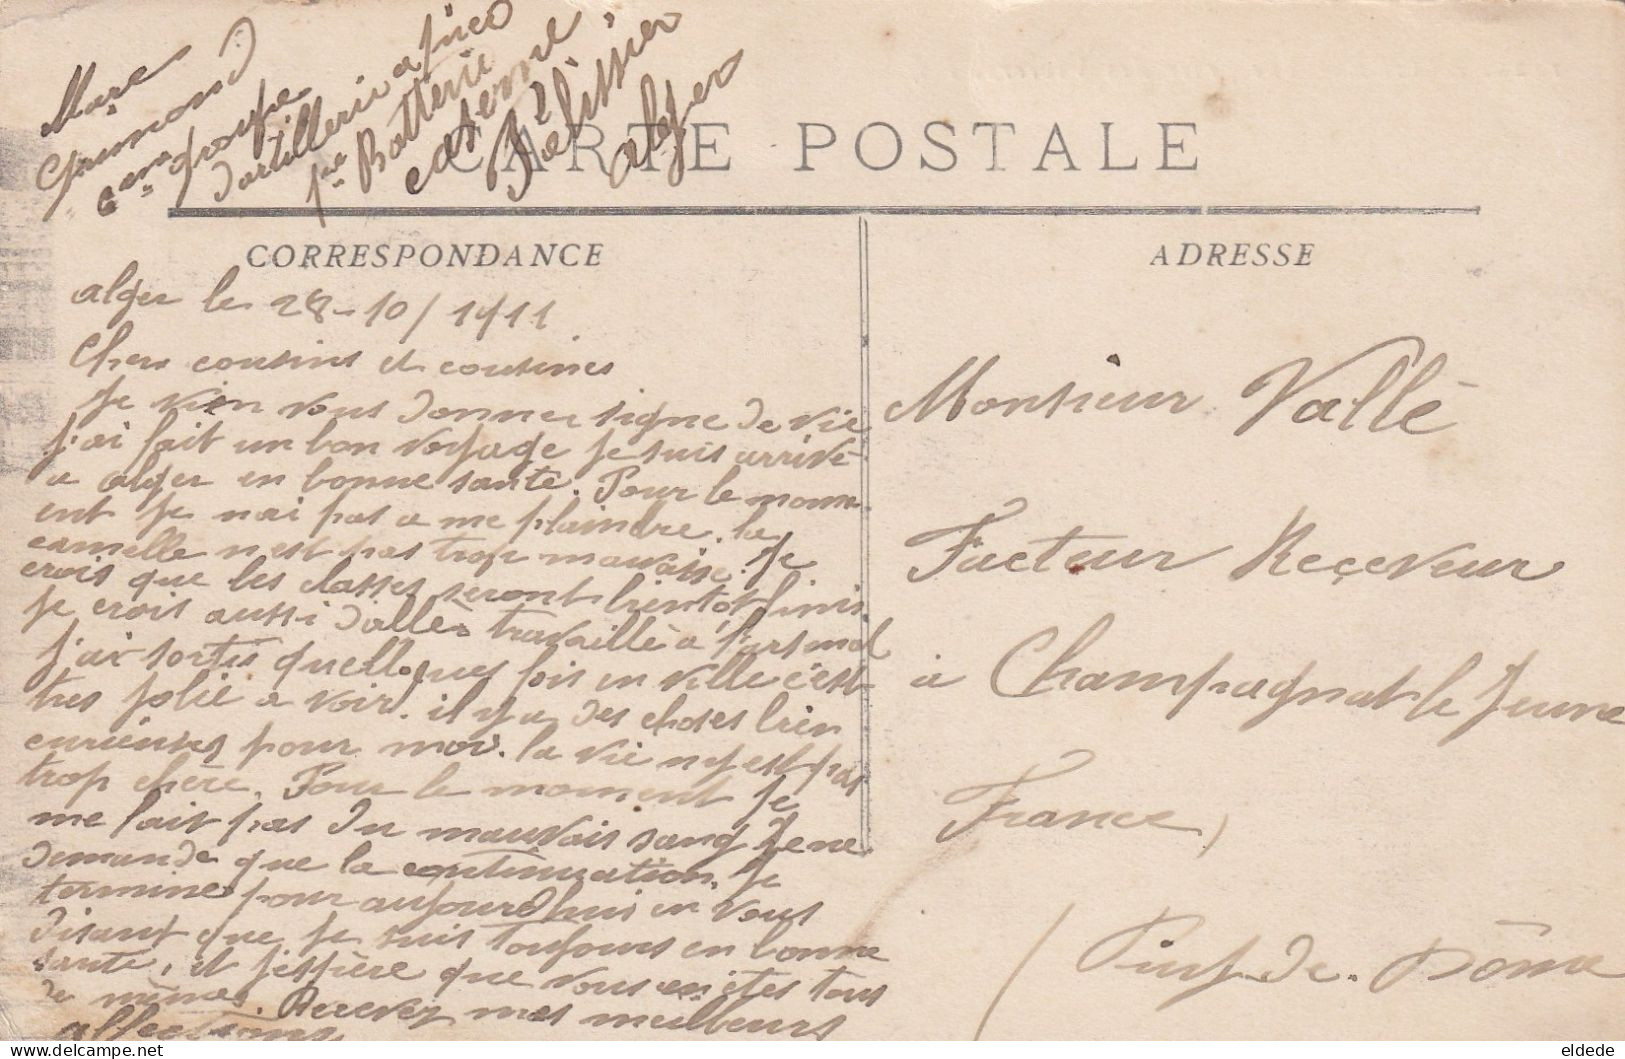 Marc
Grumond
6eme groupe
d'artillerie a frico
1ere Batterie
caserne
Pélissier
alger
CARTE POSTALE
CORRESPONDANCE
alger le 28-10/1911
Chers cousins et cousines
Je vien vous donner signe de vie
j'ai fait un bon voyage je suis arrivé
a alger en bonne santé. Pour le mom
ent je nai pas a me plaindre. la
camelle n'est pas trop mauvaise. Je
crois que les classes seront bientôt finis
Je crois aussi d'allér travaillé a l'arsenal
j'ai sortis quellques fois en ville c'est
tres jolie a voir. il y a des choses bien
curieuses pour moi. la vie n'y est pas
trop chère. Pour le moment je
me fait pas du mauvais sang Je ne
demande que la continuation. Je
termine pour aujourd'hui en vous
disant que je suis toujours en bonne
santé, et j'espère que vous en ètes tous
de mème. Recevez mes meilleurs
affections
ADRESSE
Monsieur Vallé
Facteur Reçeveur
à Champagnat le Jeune
France,
(Puy-de-Dôme
eldede